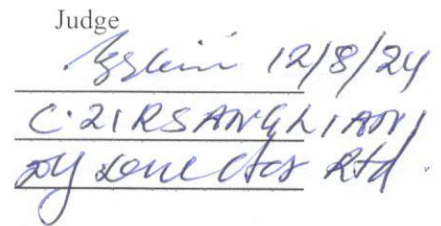 Judge
12/8/24
C. ZIRSANGLIANI
Dy Director Rtd.